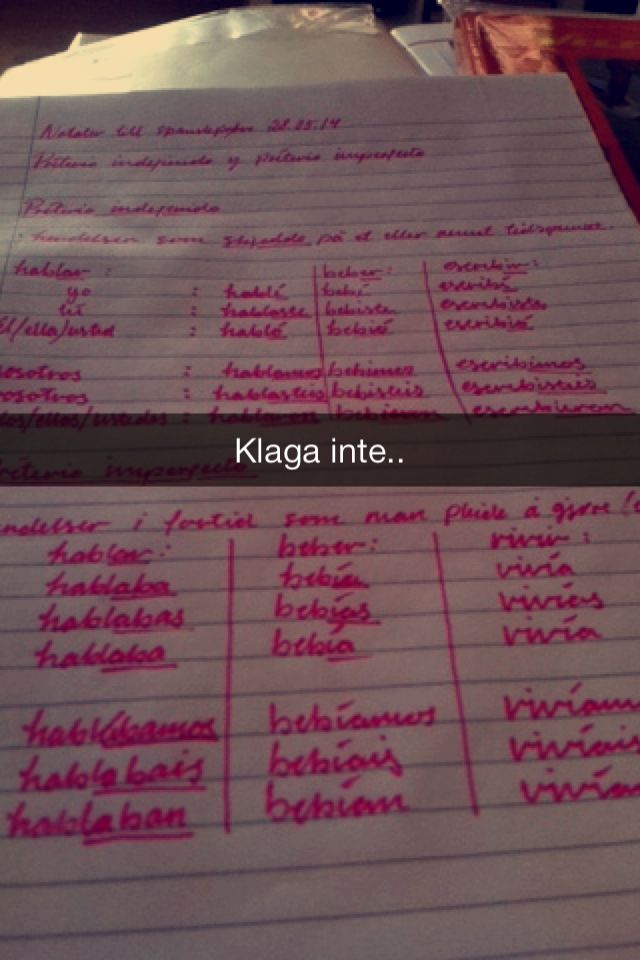 Notater till spanskprøve 28.05.14
Préterio indefinido y préterio imperfecto
Préterio indefinido
: hendelser som skjedde på et eller annet tidspunkt.
hablar : beber: escribir:
yo : hablé bebí escribí
tú : hablaste bebiste escribiste
él/ella/usted : habló bebió escribió
nosotros : hablamos bebimos escribimos
vosotros : hablasteis bebisteis escribisteis
los/ellas/ustedes : hablaron bebieron escribieron
Klaga inte..
Préterio imperfecto
hendelser i fortid som man pleide å gjøre
hablar: beber: vivir:
hablaba bebía vivía
hablabas bebías vivías
hablaba bebía vivía
hablábamos bebíamos vivíam
hablabais bebíais vivíais
hablaban bebían vivían